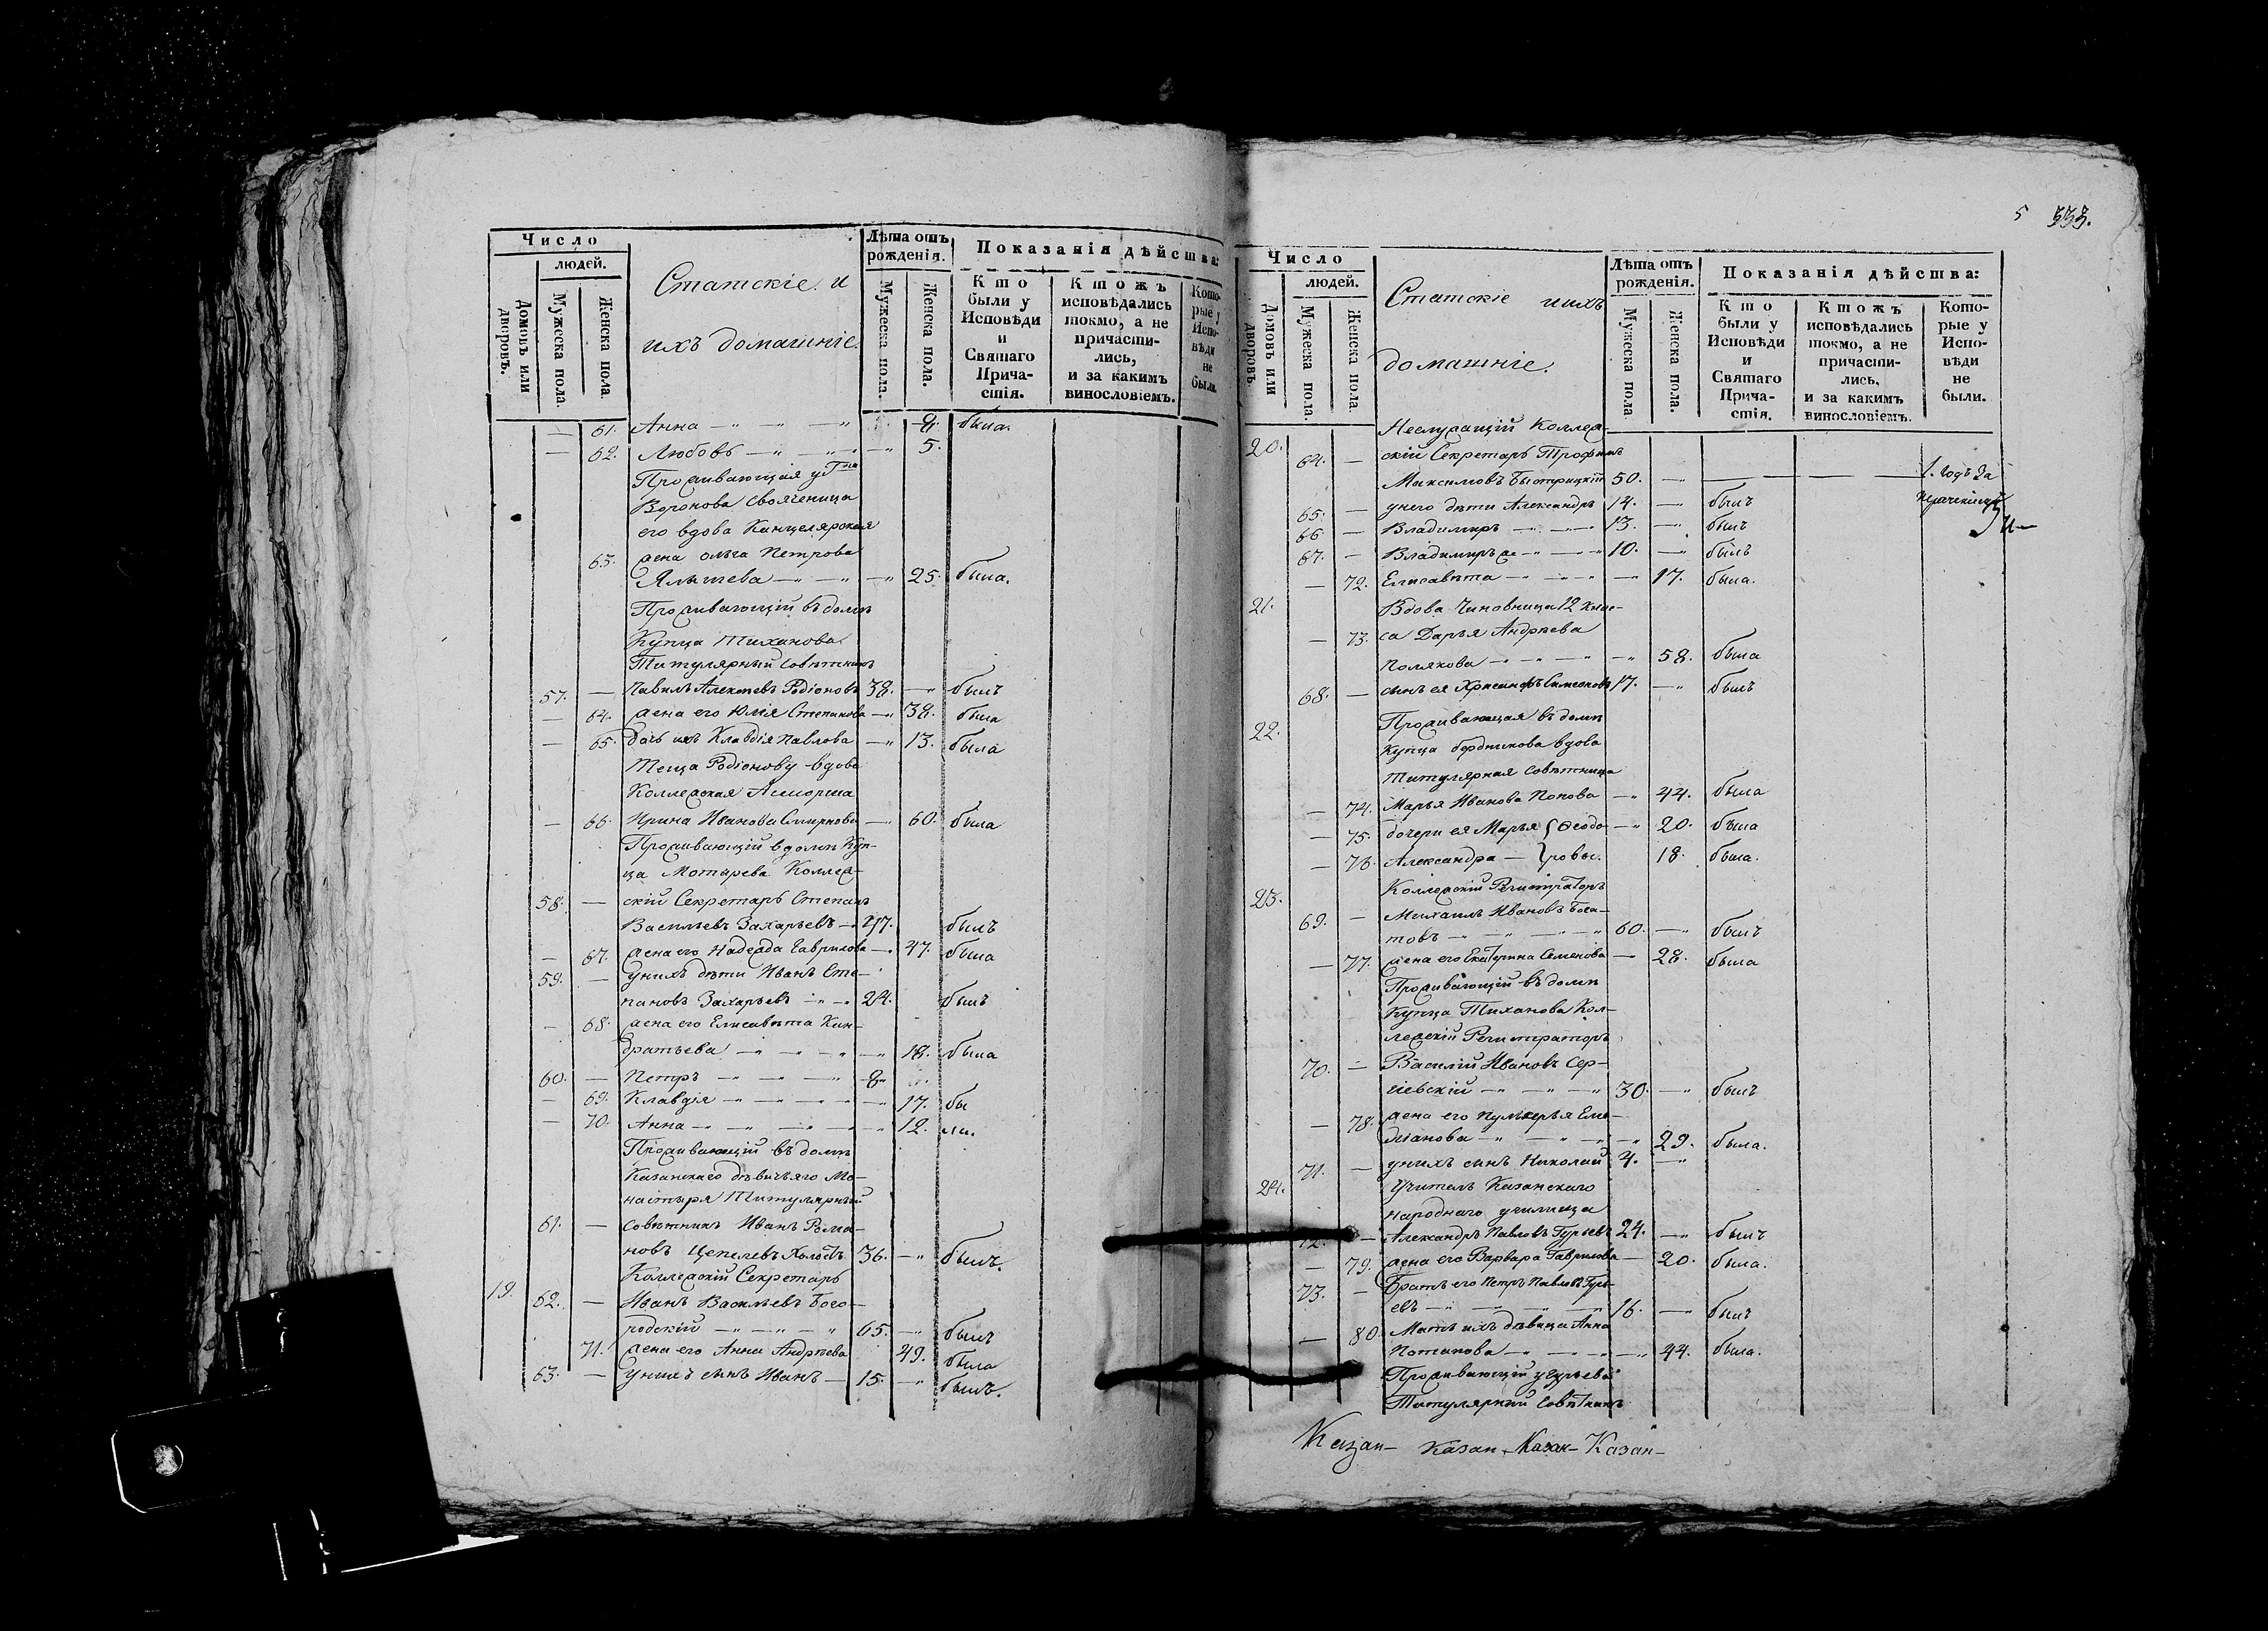 Число
людей.
Домовъ или дворовъ.
Мужеска пола.
Женска пола.
Статскіе и
ихъ домашніе.
Лѣта отъ рожденія.
Мужеска пола.
Женска пола.
Показанія дѣйства:
Кто были у Исповѣди и Святаго Причастія.
Ктожъ исповѣдались токмо, а не причастились, и за какимъ винословіемъ.
Которые у Исповѣди не были.
— 61. Анна — 9. была.
— 62. Любовь — 5.
Проживающая у Гна
Воронова свояченица
его вдова Канцелярская
63. жена Ольга Петрова
25. была.
Проживающій въ домѣ
Купца Тиханова
Титулярный Совѣтникъ
57. — Павилъ Алексѣевъ Родіоновъ 38. — былъ
— 64. жена его Юлія Степанова — 38. была
— 65. дочь ихъ Клавдія Павлова — 13. была
Теща Родіонову вдова
Коллежская Ассорша
— 66. Ирина Иванова Смирнова — 60. была
Проживающій в домѣ Куп-
ца Мотарева Коллеж-
58. — скій Секретарь Степанъ
Васильевъ Захарьевъ — 47. былъ
— 67. жена его Надежда Гаврилова — 47. была
59. — у нихъ дѣти Иванъ Сте-
пановъ Захарьевъ — 24. былъ
— 68. жена его Елисавѣта Кон-
дратьева — 18. была
60. — Петръ — 8
— 69. Клавдія — 17. бы
— 70. Анна — 12. ли.
Проживающій въ домѣ
Казанскаго дѣвичьяго Мо-
настыря Титулярный
61. — Совѣтникъ Иванъ Рома-
новъ Цепелевъ холостъ 36. — былъ.
Коллежскій Секретарь
19. 62. — Иванъ Васильевъ Бого-
родскій — 65. — былъ
71. жена его Анна Андрѣева 49. была
63. — у нихъ сынъ Иванъ — 15. — былъ.
5 533.
Число
людей.
Домовъ или дворовъ.
Мужеска пола.
Женска пола.
Статскіе и ихъ
домашніе.
Лѣта отъ рожденія.
Мужеска пола
Женска пола.
Показанія дѣйства:
Кто были у Исповѣди и Святаго Причастія.
Ктожъ исповѣдались токмо, а не причастились, и за какимъ винословіемъ.
Которые у Исповѣди не были.
Неслужащій Коллеж-
20. 64. — скій Секретарь Трофимъ
Максимовъ Быстрицкій 50. — 1. годъ за
65. — у него дѣти Александръ 14. — былъ
66. — Владимиръ — 13. — былъ
67. — Владимиръ же — 10. — былъ
— 72. Елисавѣта — 17. была.
21. Вдова Чиновница 12 клас-
— 73. са Дарья Андрѣева
Полякова — 58. была
68. — сынъ ея Хрисанфъ Симеоновъ 17. — былъ
22. Проживающая въ домѣ
купца бердникова вдова
Титулярная Совѣтница
— 74. Марья Иванова Попова — 44. была
— 75. дочери ея Марья } Ѳеодо- — 20. была
— 76. Александра — } ровы. 18. была.
23. Коллежскій Регистраторъ
69. — Михаилъ Ивановъ Бога-
товъ — 60. — былъ
— 77. жена его Екатерина Семенова — 28. была
Проживающій въ домѣ
Купца Тиханова Кол-
лежскій Регистраторъ
70. — Василій Ивановъ Сер-
гіевскій — 30. — былъ
— 78. жена его Пулхерья Еме-
ліанова — 29. была.
71. — у нихъ сынъ Николай 4. —
24. Учитель Казанскаго
народнаго училища
72. — Александръ Павловъ Гурьевъ 24. — былъ
— 79. жена его Варвара Гаврилова — 20. была.
73. — Братъ его Петръ Павловъ Гурь-
евъ — 16. — былъ
— 80. Мать ихъ вдовица Анна
Потапова — 44. была.
Проживающій у Гурьева
Титулярный Совѣтникъ
Казан- Казан- Казан- Казан-